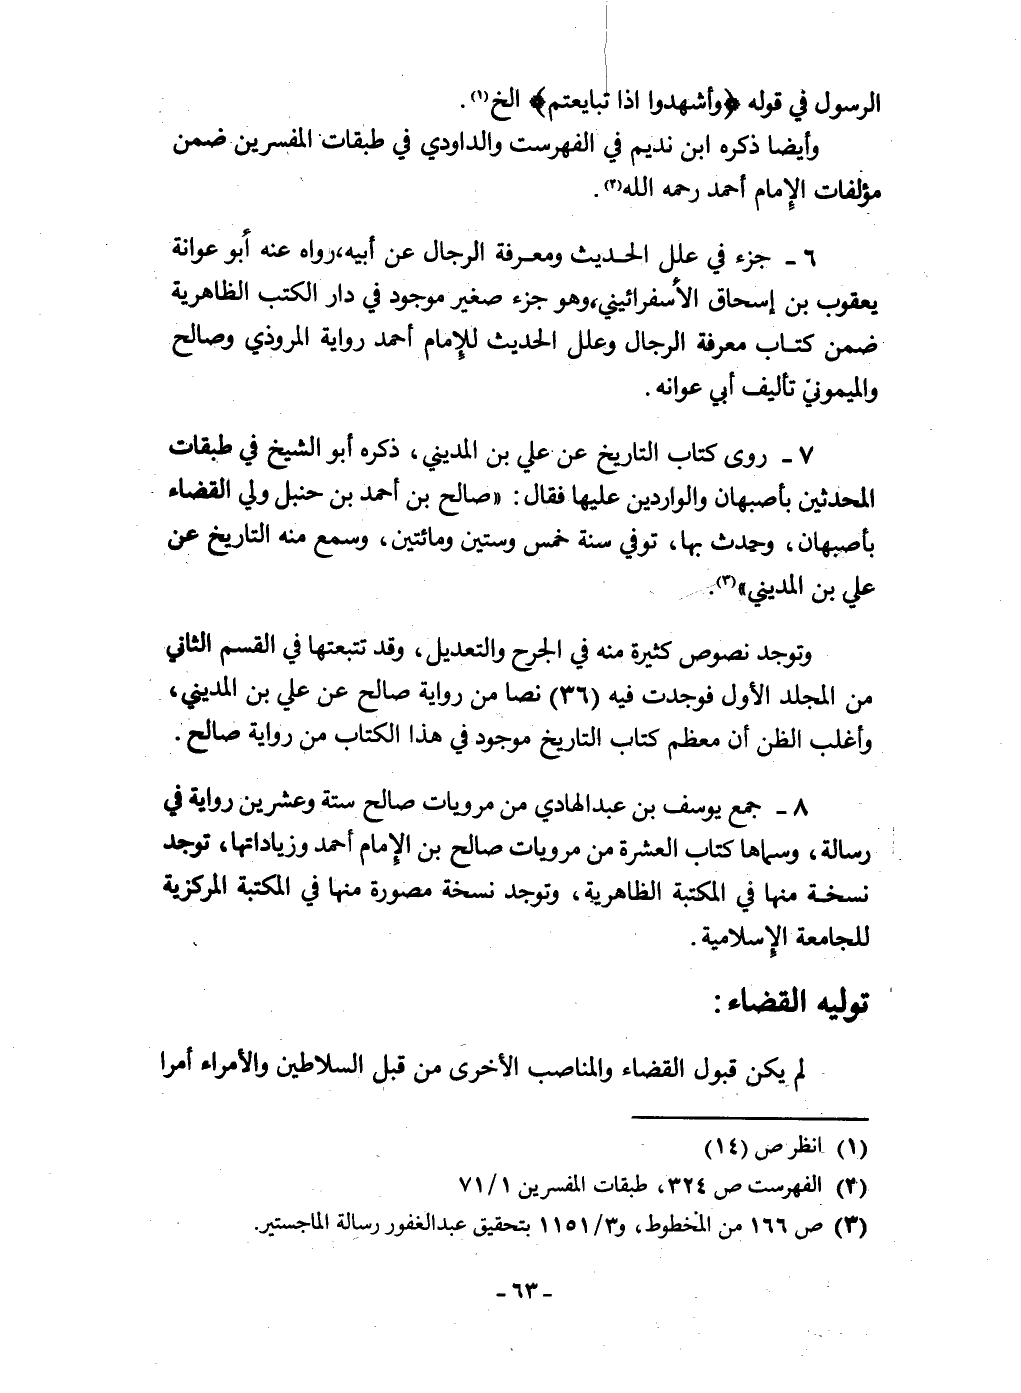 الرسول في قوله ﴿وأشهدوا اذا تبايعتم﴾ الخ(١).
وأيضا ذكره ابن نديم في الفهرست والداودي في طبقات المفسرين ضمن
مؤلفات الإمام أحمد رحمه الله(٢).
٦ ـ جزء في علل الحديث ومعرفة الرجال عن أبيه، رواه عنه أبو عوانة
يعقوب بن إسحاق الأسفرائيني، وهو جزء صغير موجود في دار الكتب الظاهرية
ضمن كتاب معرفة الرجال وعلل الحديث للإمام أحمد رواية المروذي وصالح
والميموني تأليف أبي عوانه.
٧ ـ روى كتاب التاريخ عن علي بن المديني، ذكره أبو الشيخ في طبقات
المحدثين بأصبهان والواردين عليها فقال: «صالح بن أحمد بن حنبل ولي القضاء
بأصبهان، وحدث بها، توفي سنة خمس وستين ومائتين، وسمع منه التاريخ عن
علي بن المديني»(٣).
وتوجد نصوص كثيرة منه في الجرح والتعديل، وقد تتبعتها في القسم الثاني
من المجلد الأول فوجدت فيه (٣٦) نصا من رواية صالح عن علي بن المديني،
وأغلب الظن أن معظم كتاب التاريخ موجود في هذا الكتاب من رواية صالح.
٨ ـ جمع يوسف بن عبدالهادي من مرويات صالح ستة وعشرين رواية في
رسالة، وسماها كتاب العشرة من مرويات صالح بن الإمام أحمد وزياداتها، توجد
نسخة منها في المكتبة الظاهرية، وتوجد نسخة مصورة منها في المكتبة المركزية
للجامعة الإسلامية.
توليه القضاء:
لم يكن قبول القضاء والمناصب الأخرى من قبل السلاطين والأمراء أمرا
(١) انظر ص (١٤)
(٢) الفهرست ص ٣٢٤، طبقات المفسرين ٧١/١
(٣) ص ١٦٦ من المخطوط، و٣/ ١١٥١ بتحقيق عبدالغفور رسالة الماجستير.
- ٦٣ -